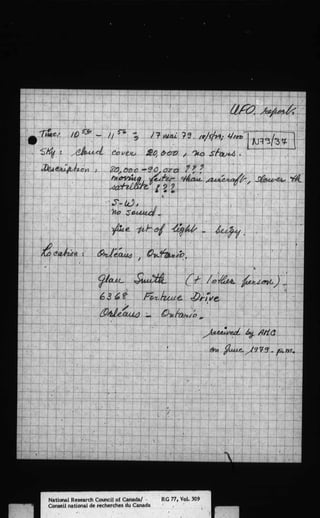 UFO. Report
Time: 10 – 11
17 mai 79.
N79/37
Sky: cloud cover 20,000, no stars.
Description: 80,000 - 90,000 ???
moving faster than aircraft, slower th
satellite ???
S-W,
no sound.
fine pt of light -
Location: Orléans, Ontario.
Glau Smith (+ 1 other person)
6368 Fortune Drive
Orléans - Ontario.
received by AMC
on June, 1979 - p.m.
National Research Council of Canada/ RG 77, Vol. 309
Conseil national de recherches du Canada